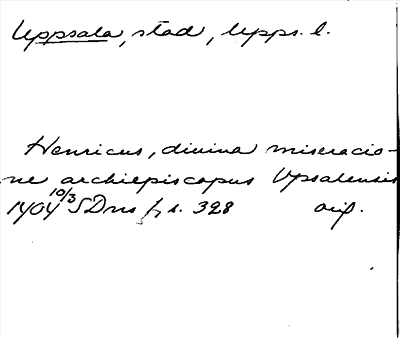 Uppsala, stad, Upps. l.
Henricus, divina miseracio-
ne archiepiscopus Upsalensis
1404 10/3 SDns 1, s. 328 orig.